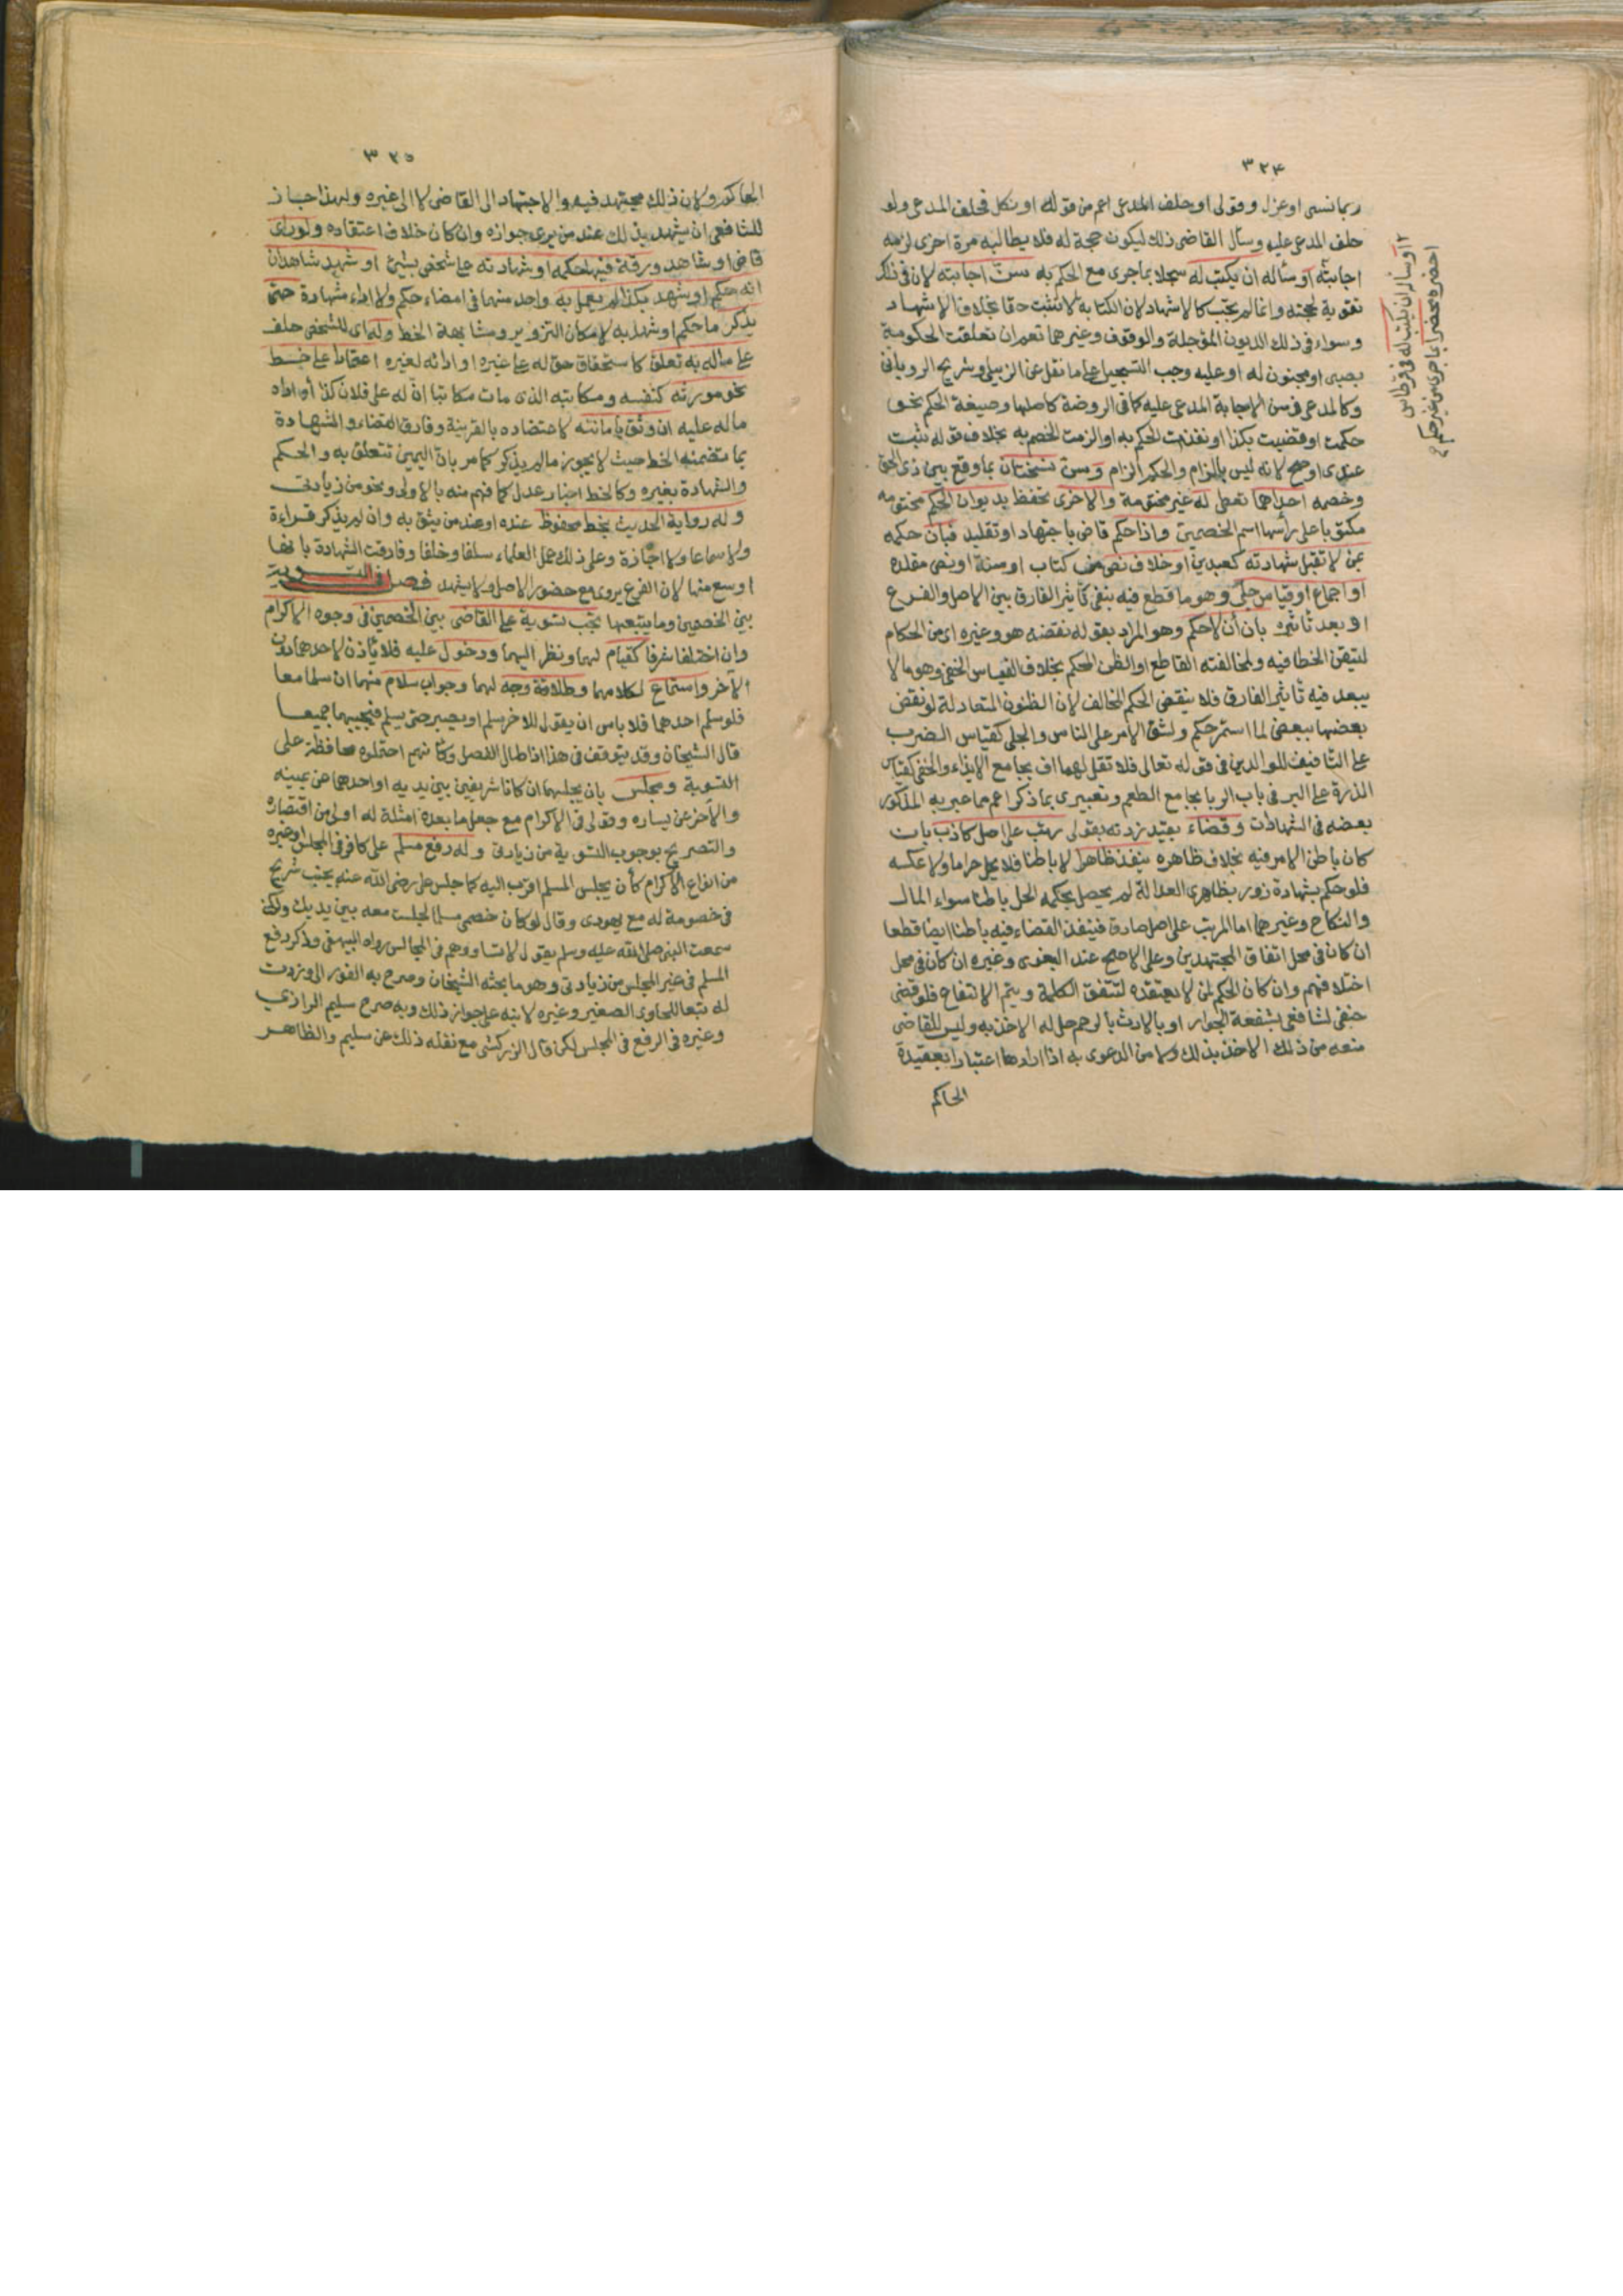 ٣٢٤
ربما نسى او عزل وقولى او حلف المدعى اعم من قوله او نكل فحلف المدعى ولو
حلف المدعى عليه وسأل القاضى ذلك ليكون حجة له فلا يطالبه مرة اخرى لزمه
اجابته او سأله ان يكتب له سجلا بما جرى مع الحكم به سنّ اجابته لان فى ذلك
تقوية لحجته وانما لم تجب كالاشهاد لان الكتابة لا تثبت حقا بخلاف الاشهاد
وسواء فى ذلك الديون المؤجلة والوقوف وغيرهما نعم ان تعلقت الحكومة
بصبى او مجنون له او عليه وجب التسجيل على ما نقل عن الزبيلى وشريح الرويانى
وكالمدعى فى سن الاجابة المدعى عليه كما فى الروضة كاصلها وصيغة الحكم نحو
حكمت او قضيت بكذا او نفذت الحكم به او الزمت الخصم به بخلاف قوله ثبت
عندى او صح لانه ليس بالزام والحكم الزام وسن نسختان بما وقع بين ذى الحق
وخصمه احداهما تعطى له غير مختومة والاخرى تحفظ بديوان الحكم مختومه
مكتوب على رأسها اسم الخصمين واذا حكم قاض باجتهاد او تقليد فبان حكمه
بمن لا تقبل شهادته كعبدين او خلاف نص من كتاب او سنة او نص مقلده
او اجماع او قياس جلى وهو ما قطع فيه بنفى تأثير الفارق بين الاصل والفرع
او بعد تاثيره بان أن لا حكم وهو المراد بقوله نقضه هو وغيره اى من الحكام
لتيقن الخطا فيه ولمخالفته القاطع او الظن المحكم بخلاف القياس الخفى وهو ما لا
يبعد فيه تأثير الفارق فلا ينقض الحكم المخالف لان الظنون المتعادلة لو نقض
بعضها ببعض لما استمر حكم ولشق الامر على الناس والجلى كقياس الضرب
على التافيف للوالدين فى قوله تعالى فلا تقل لهما اف بجامع الايذاء والخفى كقياس
الذرة على البر فى باب الربا بجامع الطعم وتعبيرى بما ذكر اعم مما عبر به المذكور
بعضه فى الشهادات وقضاء بقيد زدته بقولى رتب على اصل كاذب بان
كان باطن الامر فيه بخلاف ظاهره ينفذ ظاهرا لا باطنا فلا يحل حراما ولا عكسه
فلو حكم بشهادة زور بظاهرى العدالة لم يحصل بحكمه الحل باطنا سواء المال
والنكاح وغيرهما اما المرتب على اصل صادق فينفذ القضاء فيه باطنا ايضا قطعا
ان كان فى محل اتفاق المجتهدين وعلى الاصح عند البغوى وغيره ان كان فى محل
اختلافهم وان كان الحكم لمن لا يعتقده لتتفق الكلمة ويتم الانتفاع فلو قضى
حنفى لشافعى بشفعة الجوار او بالارث بالرحم حل له الاخذ به وليس للقاضى
منعه من ذلك الاخذ بذلك ولا من الدعوى به اذا ارادها اعتبارا بعقيدة
الحاكم
او سأله ان يكتب له فى قرطاس
احضره محضرا بما جرى من غير حكم
٣٢٥
الحاكم ولان ذلك مجتهد فيه والاجتهاد الى القاضى لا الى غيره ولهذا جاز
للشافعى ان يشهد بذلك عند من يرى جوازه وان كان خلاف اعتقاده ولو راى
قاض او شاهد ورقة فيها حكمه او شهادته على شخص بشئ او شهد شاهدان
انه حكم او شهد بكذا لم يعمل به واحد منهما فى امضاء حكم ولا اداء شهادة حتى
يذكر ما حكم او شهد به لامكان التزوير ومشابهة الخط وله اى للشخص حلف
على ماله به تعلق كاستحقاق حق له على غيره او ادائه لغيره اعتمادا على خط
نحو مورثه كنفسه ومكاتبه الذى مات مكاتبا ان له على فلان كذا او اداه
ماله عليه ان وثق بامانته لاعتضاده بالقرينة وفارق القضاء والشهادة
بما تضمنه الخط حيث لا يجوز ما لم يذكر كما مر بان اليمين تتعلق به والحكم
والشهادة بغيره وكالخط اخبار عدل كما فهم منه بالاولى ونحو من زيادتى
وله رواية الحديث بخط محفوظ عنده او عند من يثق به وان لم يذكر قراءة
ولا سماعا ولا اجازة وعلى ذلك عمل العلماء سلفا وخلفا وفارقت الشهادة بانها
اوسع منها لان الفرع يروى مع حضور الاصل ولا يشهد فصل فى التسوية
بين الخصمين وما يتبعها تجب تسوية على القاضى بين الخصمين فى وجوه الاكرام
وان اختلفا شرفا كقيام لهما ونظر اليهما ودخول عليه فلا يأذن لاحدهما دون
الآخر واستماع لكلامهما وطلاقة وجه لهما وجواب سلام منهما ان سلما معا
فلو سلم احدهما فلا باس ان يقول للاخر سلم او يصبر حتى يسلم فيجيبهما جميعا
قال الشيخان وقد يتوقف فى هذا اذا طال الفصل وكانهم احتملوه محافظة على
التسوية ومجلس بان يجلسهما ان كانا شريفين بين يديه او احدهما عن يمينه
والآخر عن يساره وقولى فى الاكرام مع جعل ما بعده امثلة له اولى من اقتصاره
والتصريح بوجوب التسوية من زيادتى وله رفع مسلم على كافر فى المجلس وغيره
من انواع الاكرام كأن يجلس المسلم اقرب اليه كما جلس على رضى الله عنه بجنب شريح
فى خصومة له مع يهودى وقال لو كان خصمى مسلما لجلست معه بين يديك ولكن
سمعت النبى صلى الله عليه وسلم يقول لا تساووهم فى المجالس رواه البيهقى وذكر رفع
المسلم فى غير المجلس من زيادتى وهو ما بحثه الشيخان وصرح به الفورانى وزدت
له تبعا للحاوى الصغير وغيره لانبه على جواز ذلك وبه صرح سليم الرازى
وغيره فى الرفع فى المجلس لكن قال الزركشى مع نقله ذلك عن سليم والظاهر